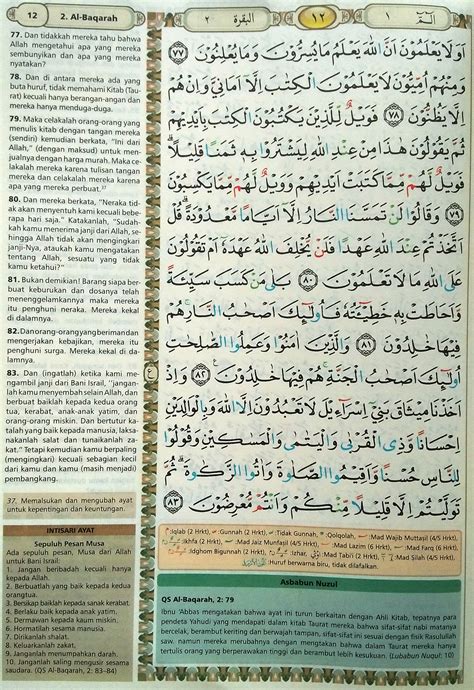 12
2. Al-Baqarah
البقرة
٢
١٢
١
77. Dan tidakkah mereka tahu bahwa
Allah mengetahui apa yang mereka
sembunyikan dan apa yang mereka
nyatakan?
78. Dan di antara mereka ada yang
buta huruf, tidak memahami Kitab (Tau-
rat) kecuali hanya berangan-angan dan
mereka hanya menduga-duga.
79. Maka celakalah orang-orang yang
menulis kitab dengan tangan mereka
(sendiri) kemudian berkata, "Ini dari
Allah," (dengan maksud) untuk men-
jualnya dengan harga murah. Maka ce-
lakalah mereka karena tulisan tangan
mereka dan celakalah mereka karena
apa yang mereka perbuat.37
80. Dan mereka berkata, "Neraka ti-
dak akan menyentuh kami kecuali bebe-
rapa hari saja." Katakanlah, "Sudah-
kah kamu menerima janji dari Allah, se-
hingga Allah tidak akan mengingkari
janji-Nya, ataukah kamu mengatakan
tentang Allah, sesuatu yang tidak
kamu ketahui?"
81. Bukan demikian! Barang siapa ber-
buat keburukan dan dosanya telah
menenggelamkannya, maka mereka
itu penghuni neraka. Mereka kekal
di dalamnya.
82. Dan orang-orang yang beriman dan
mengerjakan kebajikan, mereka itu
penghuni surga. Mereka kekal di da-
lamnya.
83. Dan (ingatlah) ketika kami me-
ngambil janji dari Bani Israil, "jangan-
lah kamu menyembah selain Allah, dan
berbuat baiklah kepada kedua orang
tua, kerabat, anak-anak yatim, dan
orang-orang miskin. Dan bertutur ka-
talah yang baik kepada manusia, laksa-
nakanlah salat dan tunaikanlah za-
kat." Tetapi kemudian kamu berpaling
(mengingkari) kecuali sebagian kecil
dari kamu dan kamu (masih menjadi)
pembangkang.
37. Memalsukan dan mengubah ayat
untuk kepentingan dan keuntungan.
INTISARI AYAT
Sepuluh Pesan Musa
Ada sepuluh pesan, Musa dari Allah
untuk Bani Israil:
1. Jangan beribadah kecuali hanya
kepada Allah.
2. Berbuatlah yang baik kepada kedua
orangtua.
3. Bersikap baiklah kepada sanak kerabat.
4. Berlaku baik kepada anak yatim.
5. Dermawan kepada kaum miskin.
6. Hormatilah sesama manusia.
7. Dirikanlah shalat.
8. Keluarkanlah zakat.
9. Janganlah menumpahkan darah.
10. Janganlah saling mengusir sesama
saudara. (QS Al-Baqarah, 2: 83-84)
اَوَلَا يَعْلَمُوْنَ اَنَّ اللّٰهَ يَعْلَمُ مَا يُسِرُّوْنَ وَمَا يُعْلِنُوْنَ
٧٧ وَمِنْهُمْ اُمِّيُّوْنَ لَا يَعْلَمُوْنَ الْكِتٰبَ اِلَّآ اَمَانِيَّ وَاِنْ هُمْ
اِلَّا يَظُنُّوْنَ ٧٨ فَوَيْلٌ لِّلَّذِيْنَ يَكْتُبُوْنَ الْكِتٰبَ بِاَيْدِيْهِمْ
ثُمَّ يَقُوْلُوْنَ هٰذَا مِنْ عِنْدِ اللّٰهِ لِيَشْتَرُوْا بِهٖ ثَمَنًا قَلِيْلًاۗ
فَوَيْلٌ لَّهُمْ مِّمَّا كَتَبَتْ اَيْدِيْهِمْ وَوَيْلٌ لَّهُمْ مِّمَّا يَكْسِبُوْنَ
٧٩ وَقَالُوْا لَنْ تَمَسَّنَا النَّارُ اِلَّآ اَيَّامًا مَّعْدُوْدَةًۗ قُلْ
اَتَّخَذْتُمْ عِنْدَ اللّٰهِ عَهْدًا فَلَنْ يُّخْلِفَ اللّٰهُ عَهْدَهٗٓ اَمْ تَقُوْلُوْنَ
عَلَى اللّٰهِ مَا لَا تَعْلَمُوْنَ ٨٠ بَلٰى مَنْ كَسَبَ سَيِّئَةً
وَّاَحَاطَتْ بِهٖ خَطِيْۤـَٔتُهٗ فَاُولٰۤىِٕكَ اَصْحٰبُ النَّارِۚ هُمْ
فِيْهَا خٰلِدُوْنَ ٨١ وَالَّذِيْنَ اٰمَنُوْا وَعَمِلُوا الصّٰلِحٰتِ
اُولٰۤىِٕكَ اَصْحٰبُ الْجَنَّةِۚ هُمْ فِيْهَا خٰلِدُوْنَ ٨٢ وَاِذْ
اَخَذْنَا مِيْثَاقَ بَنِيْٓ اِسْرَاۤءِيْلَ لَا تَعْبُدُوْنَ اِلَّا اللّٰهَ وَبِالْوَالِدَيْنِ
اِحْسَانًا وَّذِى الْقُرْبٰى وَالْيَتٰمٰى وَالْمَسٰكِيْنِ وَقُوْلُوْا
لِلنَّاسِ حُسْنًا وَّاَقِيْمُوا الصَّلٰوةَ وَاٰتُوا الزَّكٰوةَۗ ثُمَّ
تَوَلَّيْتُمْ اِلَّا قَلِيْلًا مِّنْكُمْ وَاَنْتُمْ مُّعْرِضُوْنَ ٨٣
:Iqlab (2 Hrkt), :Gunnah (2 Hrkt), :Tidak Gunnah, :Qolqolah, :Mad Wajib Muttasil (4/5 Hrkt),
:Ikhfa (2 Hrkt), :Mad Jaiz Munfasil (4/5 Hrkt), :Mad Lazim (6 Hrkt), :Mad Farq (6 Hrkt),
:Idghom Bigunnah (2 Hrkt),
Huruf berwarna biru, tidak dilafalkan.
Asbabun Nuzul
QS Al-Baqarah, 2: 79
Ibnu 'Abbas mengatakan bahwa ayat ini turun berkaitan dengan Ahli Kitab, tepatnya para
pendeta Yahudi yang mendapati dalam kitab Taurat mereka bahwa sifat-sifat nabi matanya
bercelak, berambut keriting dan berwajah tampan, sifat-sifat ini sesuai dengan fisik Rasulullah
saw. namun mereka merubahnya dengan mengatakan bahwa dalam Taurat mereka hanya
tertulis orang yang berperawakan tinggi dan berambut lebih kesukuan. (Lubabun Nuqul: 10)